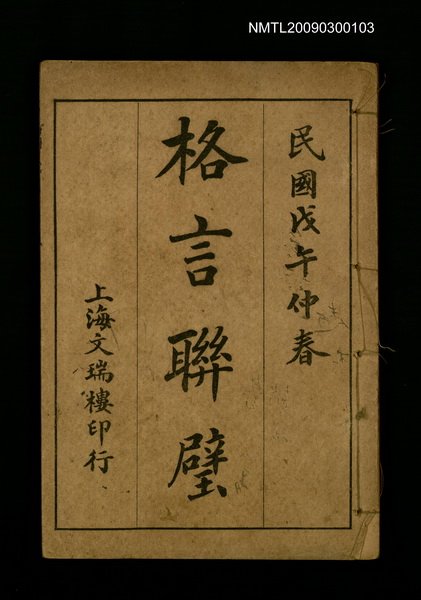 NMTL20090300103
民國戊午仲春
格言聯璧
上海文瑞樓印行